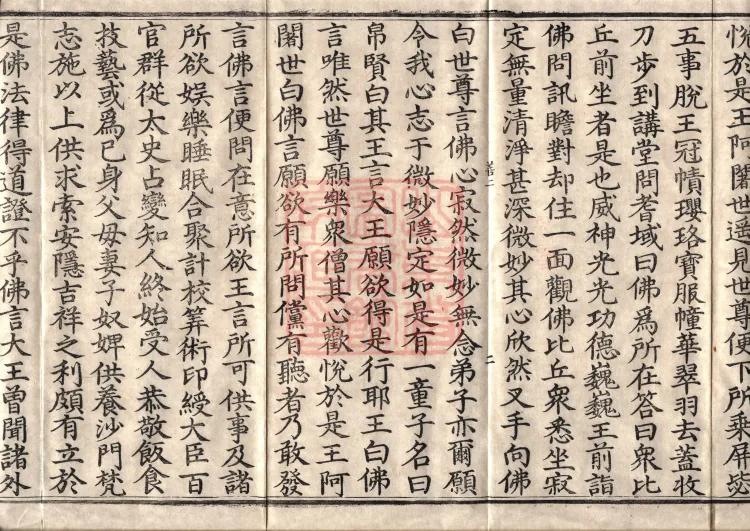 悅於是王阿闍世遥見世尊便下所乗屏
五事脫王冠幘瓔珞寶服幢華翠羽去蓋收
刀步到講堂問耆域曰佛爲所在答曰衆比
丘前坐者是也威神光光功德巍巍王前詣
佛問訊瞻對却住一面觀佛比丘衆悉坐寂
定無量清淨甚深微妙其心欣然叉手向佛
白世尊言佛心寂然微妙無念弟子亦爾願
令我心志于微妙隱定如是有一童子名曰
帛賢白其王言大王願欲得是行耶王白佛
言唯然世尊願樂衆僧其心歡悅於是王阿
闍世白佛言願欲有所問儻有聽者乃敢發
言佛言便問在意所欲王言所可供事及諸
所欲娱樂睡眠合聚計校筭術印綬大臣百
官群從太史占變知人終始受人恭敬飯食
技藝或爲已身父母妻子奴婢供養沙門梵
志施以上供求索安隱吉祥之利頗有立於
是佛法律得道證不乎佛言大王曾聞諸外